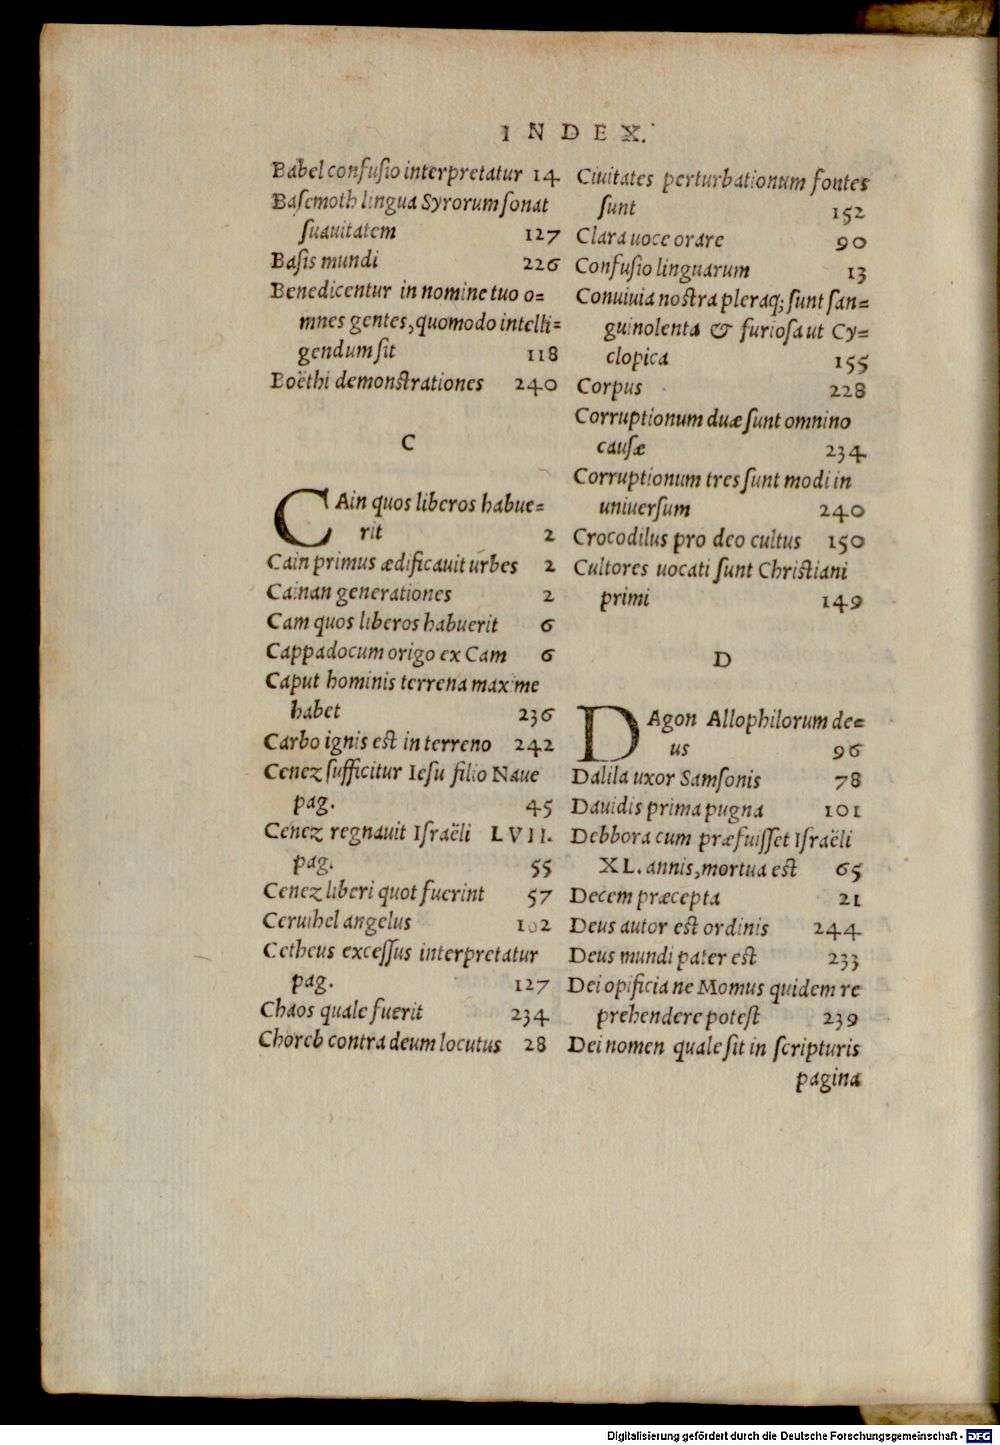 INDEX.
Babel confuſio interpretatur 14
Baſemoth lingua Syrorum ſonat
ſuauitatem 127
Baſis mundi 226
Benedicentur in nomine tuo o=
mnes gentes, quomodo intelli=
gendum ſit 118
Boëthi demonſtrationes 240
C
CAin quos liberos habue=
rit 2
Cain primus ædificauit urbes 2
Cainan generationes 2
Cam quos liberos habuerit 6
Cappadocum origo ex Cam 6
Caput hominis terrena maxime
habet 236
Carbo ignis eſt in terreno 242
Cenez ſufficitur Ieſu filio Naue
pag. 45
Cenez regnauit Iſraëli LVII.
pag. 55
Cenez liberi quot fuerint 57
Ceruihel angelus 102
Cetheus exceſſus interpretatur
pag. 127
Chaos quale fuerit 234
Choreb contra deum locutus 28
Ciuitates perturbationum fontes
ſunt 152
Clara uoce orare 90
Confuſio linguarum 13
Conuiuia noſtra pleraq; ſunt ſan=
guinolenta & furioſa ut Cy=
clopica 155
Corpus 228
Corruptionum duæ ſunt omnino
cauſæ 234
Corruptionum tres ſunt modi in
uniuerſum 240
Crocodilus pro deo cultus 150
Cultores uocati ſunt Chriſtiani
primi 149
D
DAgon Allophilorum de=
us 96
Dalila uxor Samſonis 78
Dauidis prima pugna 101
Debbora cum præfuiſſet Iſraëli
XL. annis, mortua eſt 65
Decem præcepta 21
Deus autor eſt ordinis 244
Deus mundi pater eſt 233
Dei opificia ne Momus quidem re
prehendere poteſt 239
Dei nomen quale ſit in ſcripturis
pagina
Digitalisierung gefördert durch die Deutsche Forschungsgemeinschaft - DFG